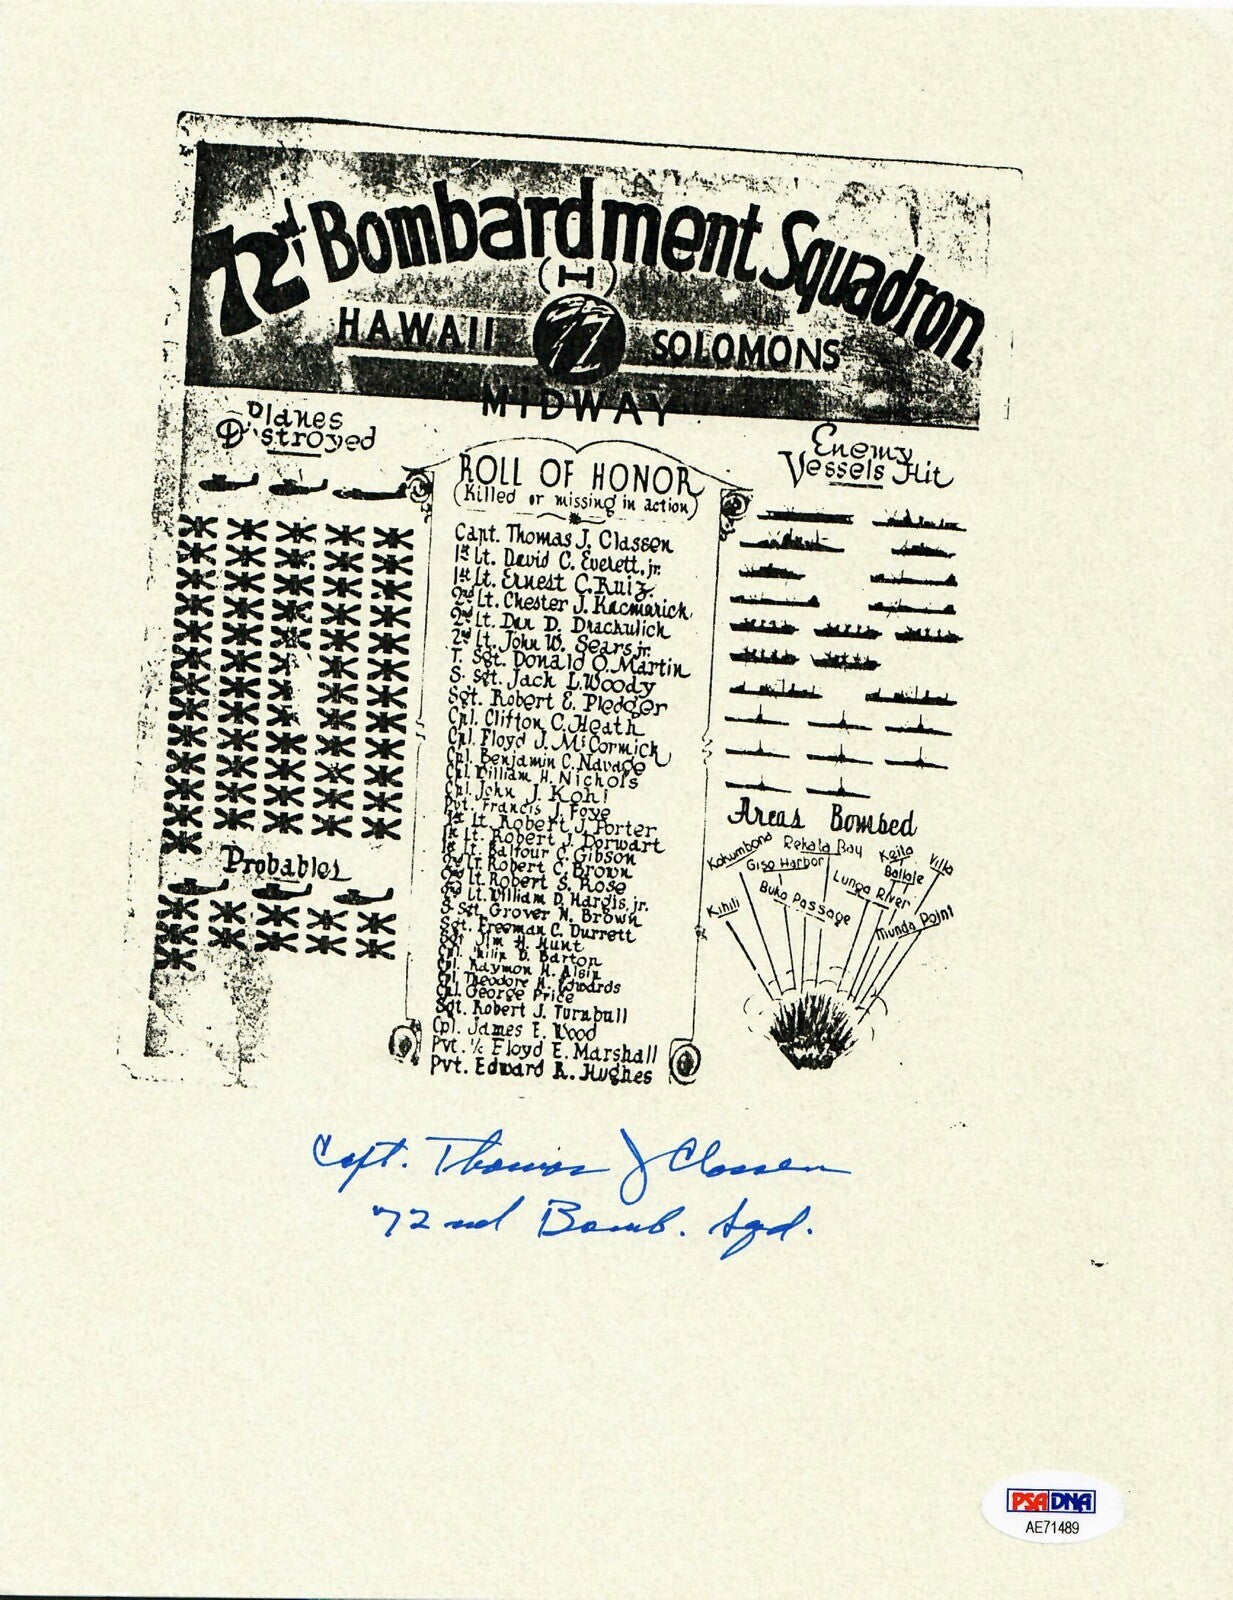 72nd Bombardment Squadron
H
HAWAII 72 SOLOMONS
MIDWAY
Planes Destroyed
ROLL OF HONOR
(Killed or missing in action)
Capt. Thomas J. Classen
1st Lt. David C. Everett, jr.
1st Lt. Ernest C. Ruiz.
2nd Lt. Chester J. Kacmarick
2nd Lt. Dan D. Drachulich
2nd Lt. John W. Sears jr.
T. Sgt. Donald O. Martin
S. Sgt. Jack L. Woody
Sgt. Robert E. Pledger
Cpl. Clifton C. Heath
Cpl. Floyd J. McCormick
Cpl. Benjamin C. Navage
Cpl. William H. Nichols
Cpl. John J. Kohl
Pvt. Francis J. Foye
1st Lt. Robert J. Porter
1st Lt. Robert J. Dorwart
1st Lt. Balfour C. Gibson
2nd Lt. Robert C. Brown
2nd Lt. Robert S. Rose
2nd Lt. William D. Hargis, jr.
S. Sgt. Grover H. Brown
Sgt. Freeman C. Durrett
Sgt. Jim H. Hunt
Cpl. Philip D. Barton
Cpl. Raymon H. Alsip
Cpl. Theodore H. Edwards
Cpl. George Price
Sgt. Robert J. Turnbull
Cpl. James E. Wood
Pvt. 1/c Floyd E. Marshall
Pvt. Edward R. Hughes
Probables
Enemy
Vessels Hit
Areas Bombed
Kahumbona
Rekata Bay
Kaila
Villa
Giso Harbor
Ballale
Lunga River
Kihili
Buka Passage
Munda Point
Capt. Thomas J Classen
72nd Bomb. Sqd.
PSA DNA
AE71489